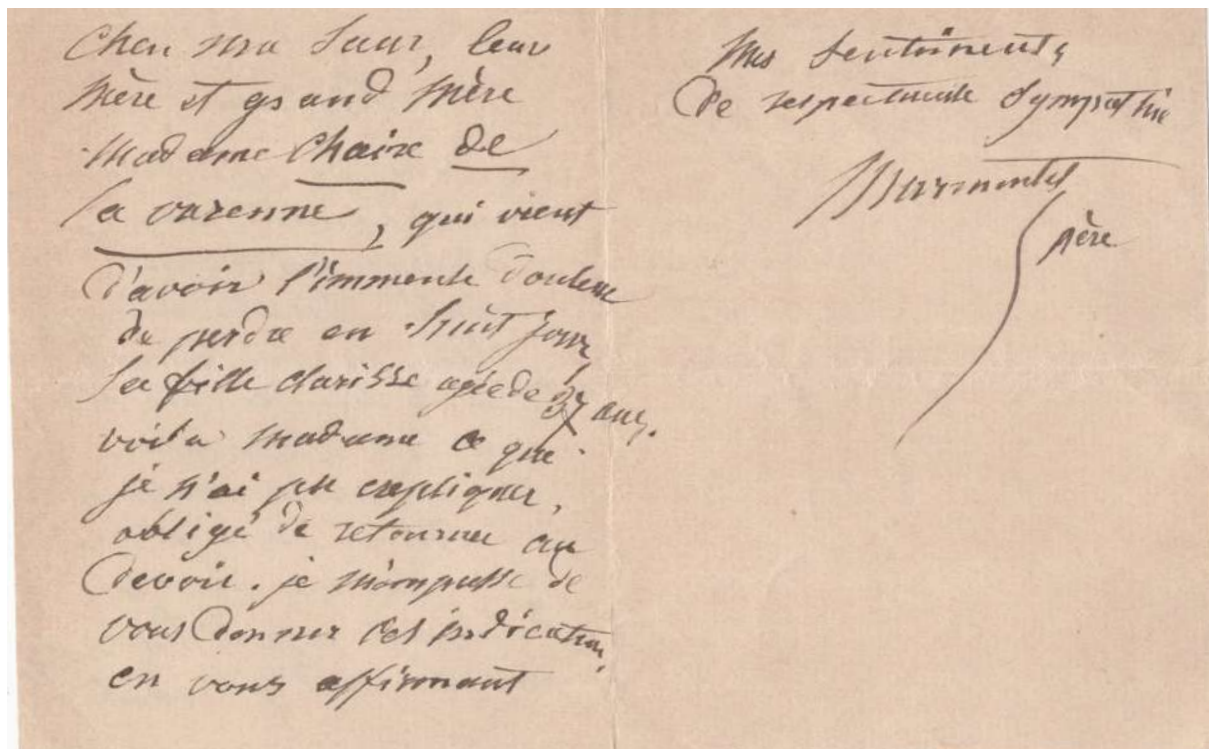 chez ma Sœur, leur
mère et grand mère
madame Chaize de
la varenne, qui vient
d'avoir l'immense douleur
de perdre en huit jours
sa fille clarisse agée de 37 ans.
voila madame ce que
je n'ai pu expliquer,
obligé de retourner au
devoir. je m'empresse de
vous donner ces indications,
en vous affirmant
mes sentiments
de respectueuse sympathie
Marmontel
père